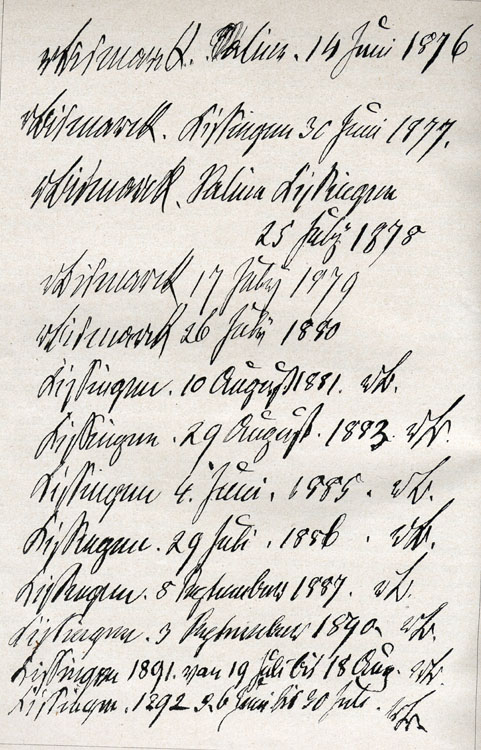 vBismarck. Saline. 14 Juni 1876
vBismarck. Kissingen 30 Juni 1877.
vBismarck. Saline Kissingen
25 July 1878
vBismarck 17 July 1879
vBismarck 26 July 1880
Kissingen. 10 August 1881. vB.
Kissingen. 29 August. 1883. vB.
Kissingen 4. Juni. 1885. vB.
Kissingen. 29 Juli. 1886. vB.
Kissingen. 8 September 1887. vB.
Kissingen. 3 September 1890. vB.
Kissingen 1891. von 19 Juli bis 18 Aug. vB.
Kissingen. 1892 26 Juni bis 30 Juli. vB.